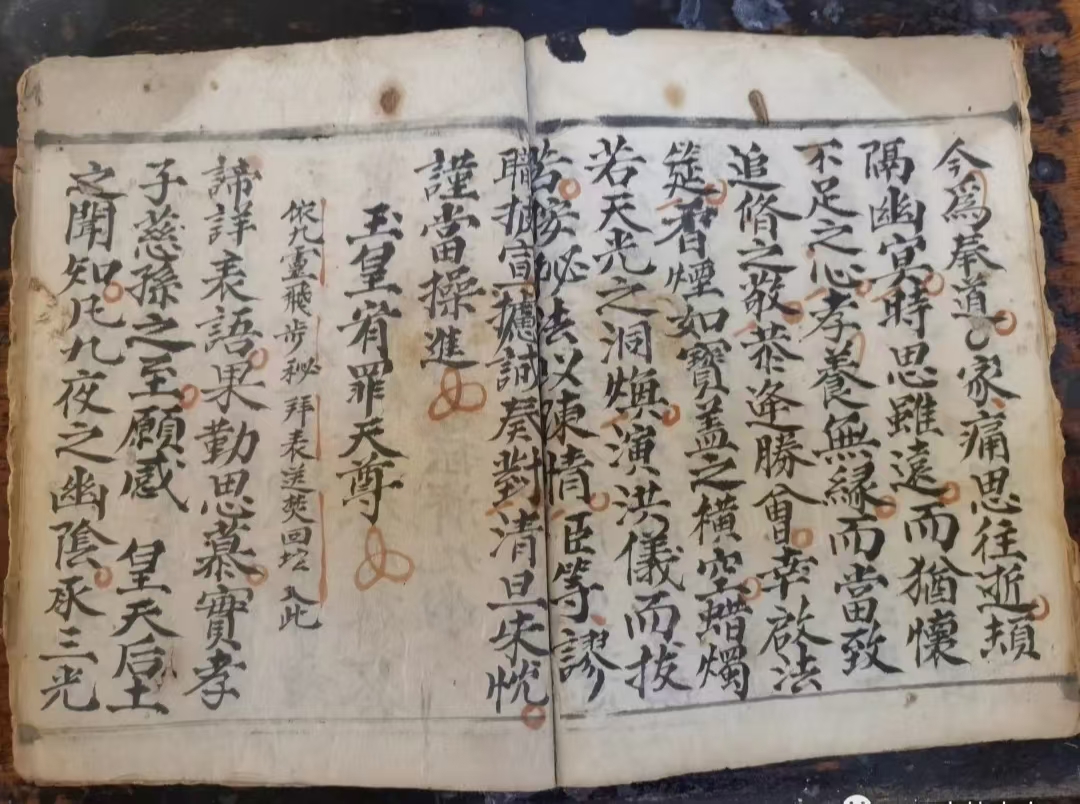 今爲奉道家痛思往逝頓
隔幽冥時思雖遠而猶懷
不足之心孝養無緣而當致
追脩之敬恭逢勝會幸啟法
筵香煙如寶盖之橫空蜡燭
若天光之洞煥演洪儀而拔
苦按祕法以陳情臣等謬
職抵宣攄誠奏對清旦未忱
謹當操進
玉皇宥罪天尊
依九靈飛步秘拜表送焚回坛入此
諦詳表語果勤思慕實孝
子慈孫之至願感 皇天后土
之聞知凡九夜之幽陰承三光